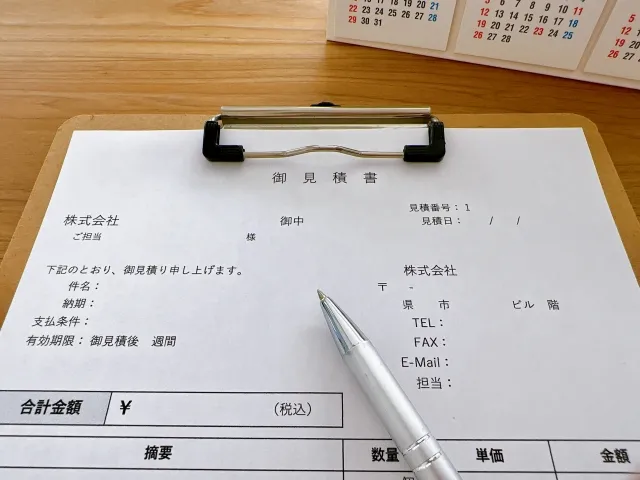 16 17 18 19 20 21
22 23 24 25 26 27 28
29 30 31
5 6 7 8 9 10 11
12 13 14 15 16 17 18
19 20 21 22 23 24 25
26 27 28
5
12
19
26
御見積書
見積番号：1
株式会社 御中
見積日： / /
ご担当 様
下記のとおり、御見積り申し上げます。
株式会社
件名：
〒 -
納期：
県 市 ビル 階
支払条件：
TEL：
有効期限：御見積後 週間
FAX：
E-Mail：
担当：
合計金額 ¥ （税込）
摘要 数量 単価 金額